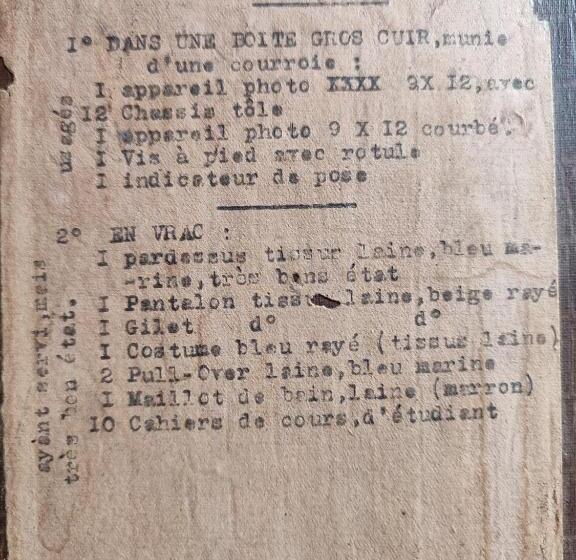 I° DANS UNE BOITE GROS CUIR,munie
d'une courroie :
usagés
I appareil photo XXXX 9X I2,avec
I2 Chassis tôle
I appareil photo 9 X I2 courbé.
I Vis à pied avec rotule
I indicateur de pose
2° EN VRAC :
ayant servi,mais
très bon état.
I pardessus tissur laine,bleu ma-
-rine,très bons état
I Pantalon tissu laine,beige rayé
I Gilet d° d°
I Costume bleu rayé (tissus laine)
2 Pull-Over laine,bleu marine
I Maillot de bain,laine (marron)
IO Cahiers de cours,d'étudiant